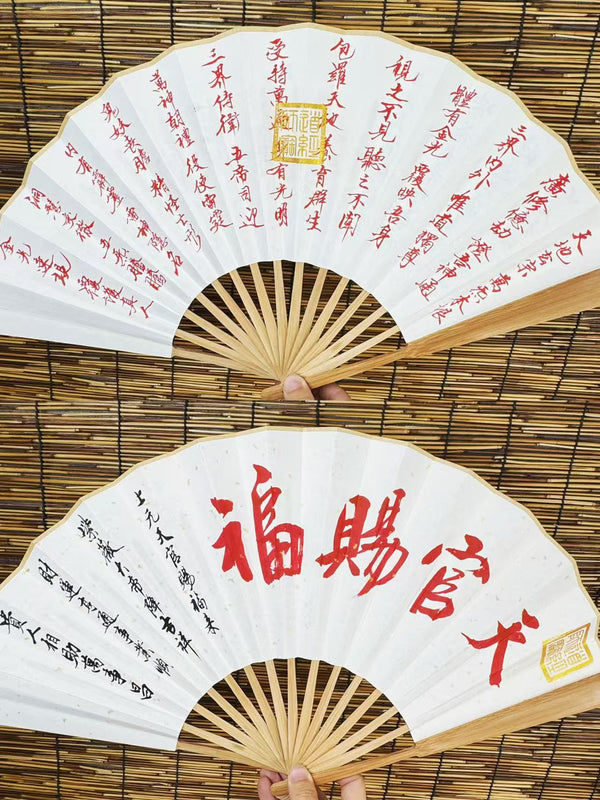 天地玄宗 萬炁本根
廣修億劫 證吾神通
三界內外 唯道獨尊
體有金光 覆映吾身
視之不見 聽之不聞
包羅天地 養育群生
受持萬 有光明
三界侍衛 五帝司迎
萬神朝禮 役使雷霆
鬼妖喪膽 精怪亡形
內有霹靂 雷神隱名
洞慧交徹 五炁騰騰
金光速現 覆護真人
天官賜福
上元天官賜福來
紫薇大帝降吉祥
財運亨通事業順
貴人相助萬事昌